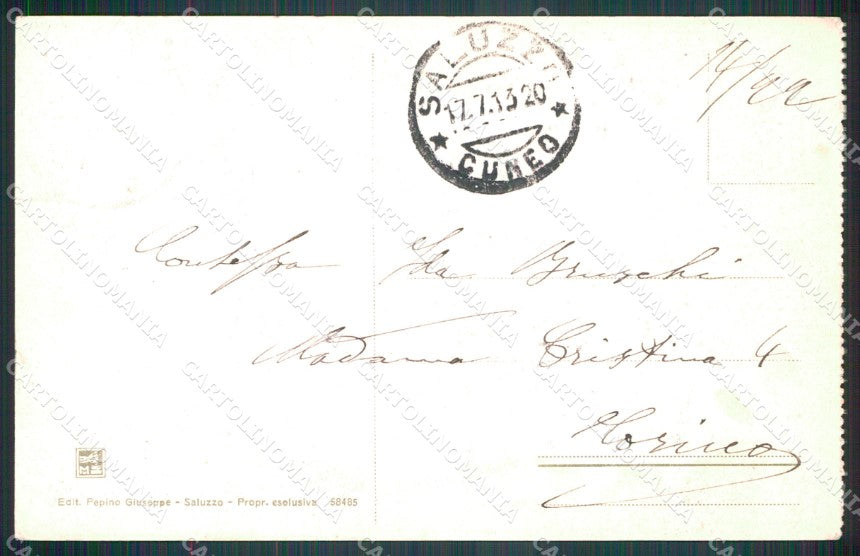 SALUZZO
17.7.13 20
CUNEO
Contessa Ida Bruschi
Madama Cristina 4
Torino
Edit. Pepino Giuseppe - Saluzzo - Propr. esclusiva 58485
CARTOLINOMANIA